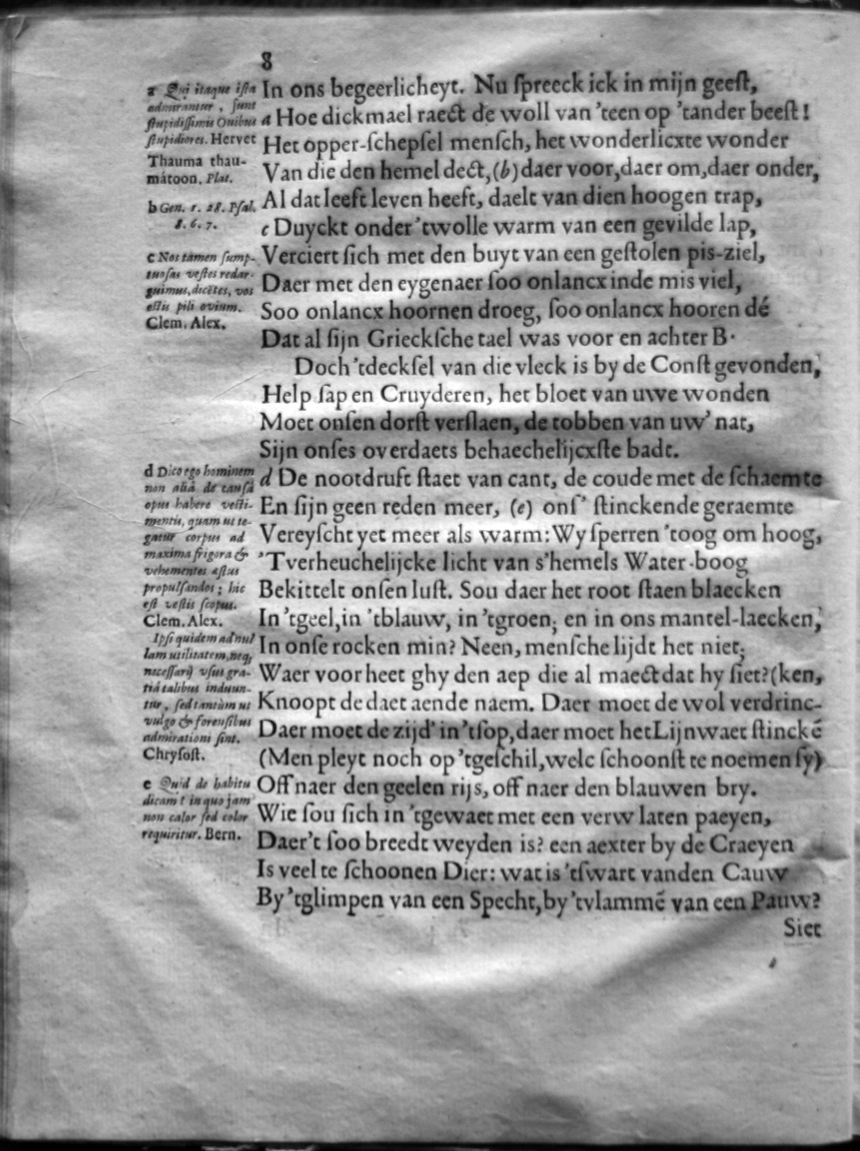 8
a Qui itaque ista
admirantur, sunt
stupidissimis Ouibus
stupidiores. Hervet
Thauma thau-
mátoon. Plat.
b Gen. 1. 28. Psal.
8. 6. 7.
c Nos tamen sump-
tuosas vestes redar-
guimus, dicẽtes, vos
estis pili ovium.
Clem. Alex.
d Dico ego hominem
non aliâ de causâ
opus habere vesti-
mentis, quam ut te-
gatur corpus ad
maxima frigora &
vehementes æstus
propulsandos; hic
est vestis scopus.
Clem. Alex.
Ipsi quidem ad nul
lam utilitatem, neq;
necessarij usus gra-
tiâ talibus induun-
tur, sed tantùm ut
vulgo & forensibus
admirationi sint.
Chrysost.
e Quid de habitu
dicam? in quo jam
non calor sed color
requiritur. Bern.
In ons begeerlicheyt. Nu spreeck ick in mijn geest,
a Hoe dickmael raect de woll van 'teen op 'tander beest!
Het opper-schepsel mensch, het wonderlicxte wonder
Van die den hemel dect, (b) daer voor, daer om, daer onder,
Al dat leeft leven heeft, daelt van dien hoogen trap,
c Duyckt onder 'twolle warm van een gevilde lap,
Verciert sich met den buyt van een gestolen pis-ziel,
Daer met den eygenaer soo onlancx inde mis viel,
Soo onlancx hoornen droeg, soo onlancx hooren dé
Dat al sijn Griecksche tael was voor en achter B.
Doch 'tdecksel van die vleck is by de Const gevonden,
Help sap en Cruyderen, het bloet van uwe wonden
Moet onsen dorst verslaen, de tobben van uw' nat,
Sijn onses overdaets behaechelijcxste badt.
d De nootdruft staet van cant, de coude met de schaemte
En sijn geen reden meer, (e) ons' stinckende geraemte
Vereyscht yet meer als warm: Wy sperren 'toog om hoog,
'Tverheuchelijcke licht van s'hemels Water-boog
Bekittelt onsen lust. Sou daer het root staen blaecken
In 'tgeel, in 'tblauw, in 'tgroen, en in ons mantel-laecken,
In onse rocken min? Neen, mensche lijdt het niet;
Waer voor heet ghy den aep die al maect dat hy siet? (ken,
Knoopt de daet aende naem. Daer moet de wol verdrinc-
Daer moet de zijd' in 'tsop, daer moet het Lijnwaet stinckẽ
(Men pleyt noch op 'tgeschil, welc schoonst te noemen sy)
Off naer den geelen rijs, off naer den blauwen bry.
Wie sou sich in 'tgewaet met een verw laten paeyen,
Daer't soo breedt weyden is? een aexter by de Craeyen
Is veel te schoonen Dier: wat is 'tswart vanden Cauw
By 'tglimpen van een Specht, by 'tvlammẽ van een Pauw?
Siet